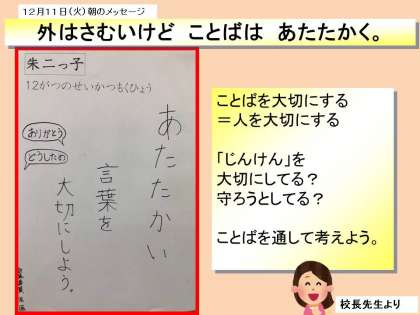 12月11日(火)朝のメッセージ
外はさむいけど ことばは あたたかく。
朱二っ子
12がつのせいかつもくひょう
ありがとう
どうしたの
あたたかい
言葉を
大切にしよう。
ことばを大切にする
＝人を大切にする
「じんけん」を
大切にしてる?
守ろうとしてる?
ことばを通して考えよう。
校長先生より